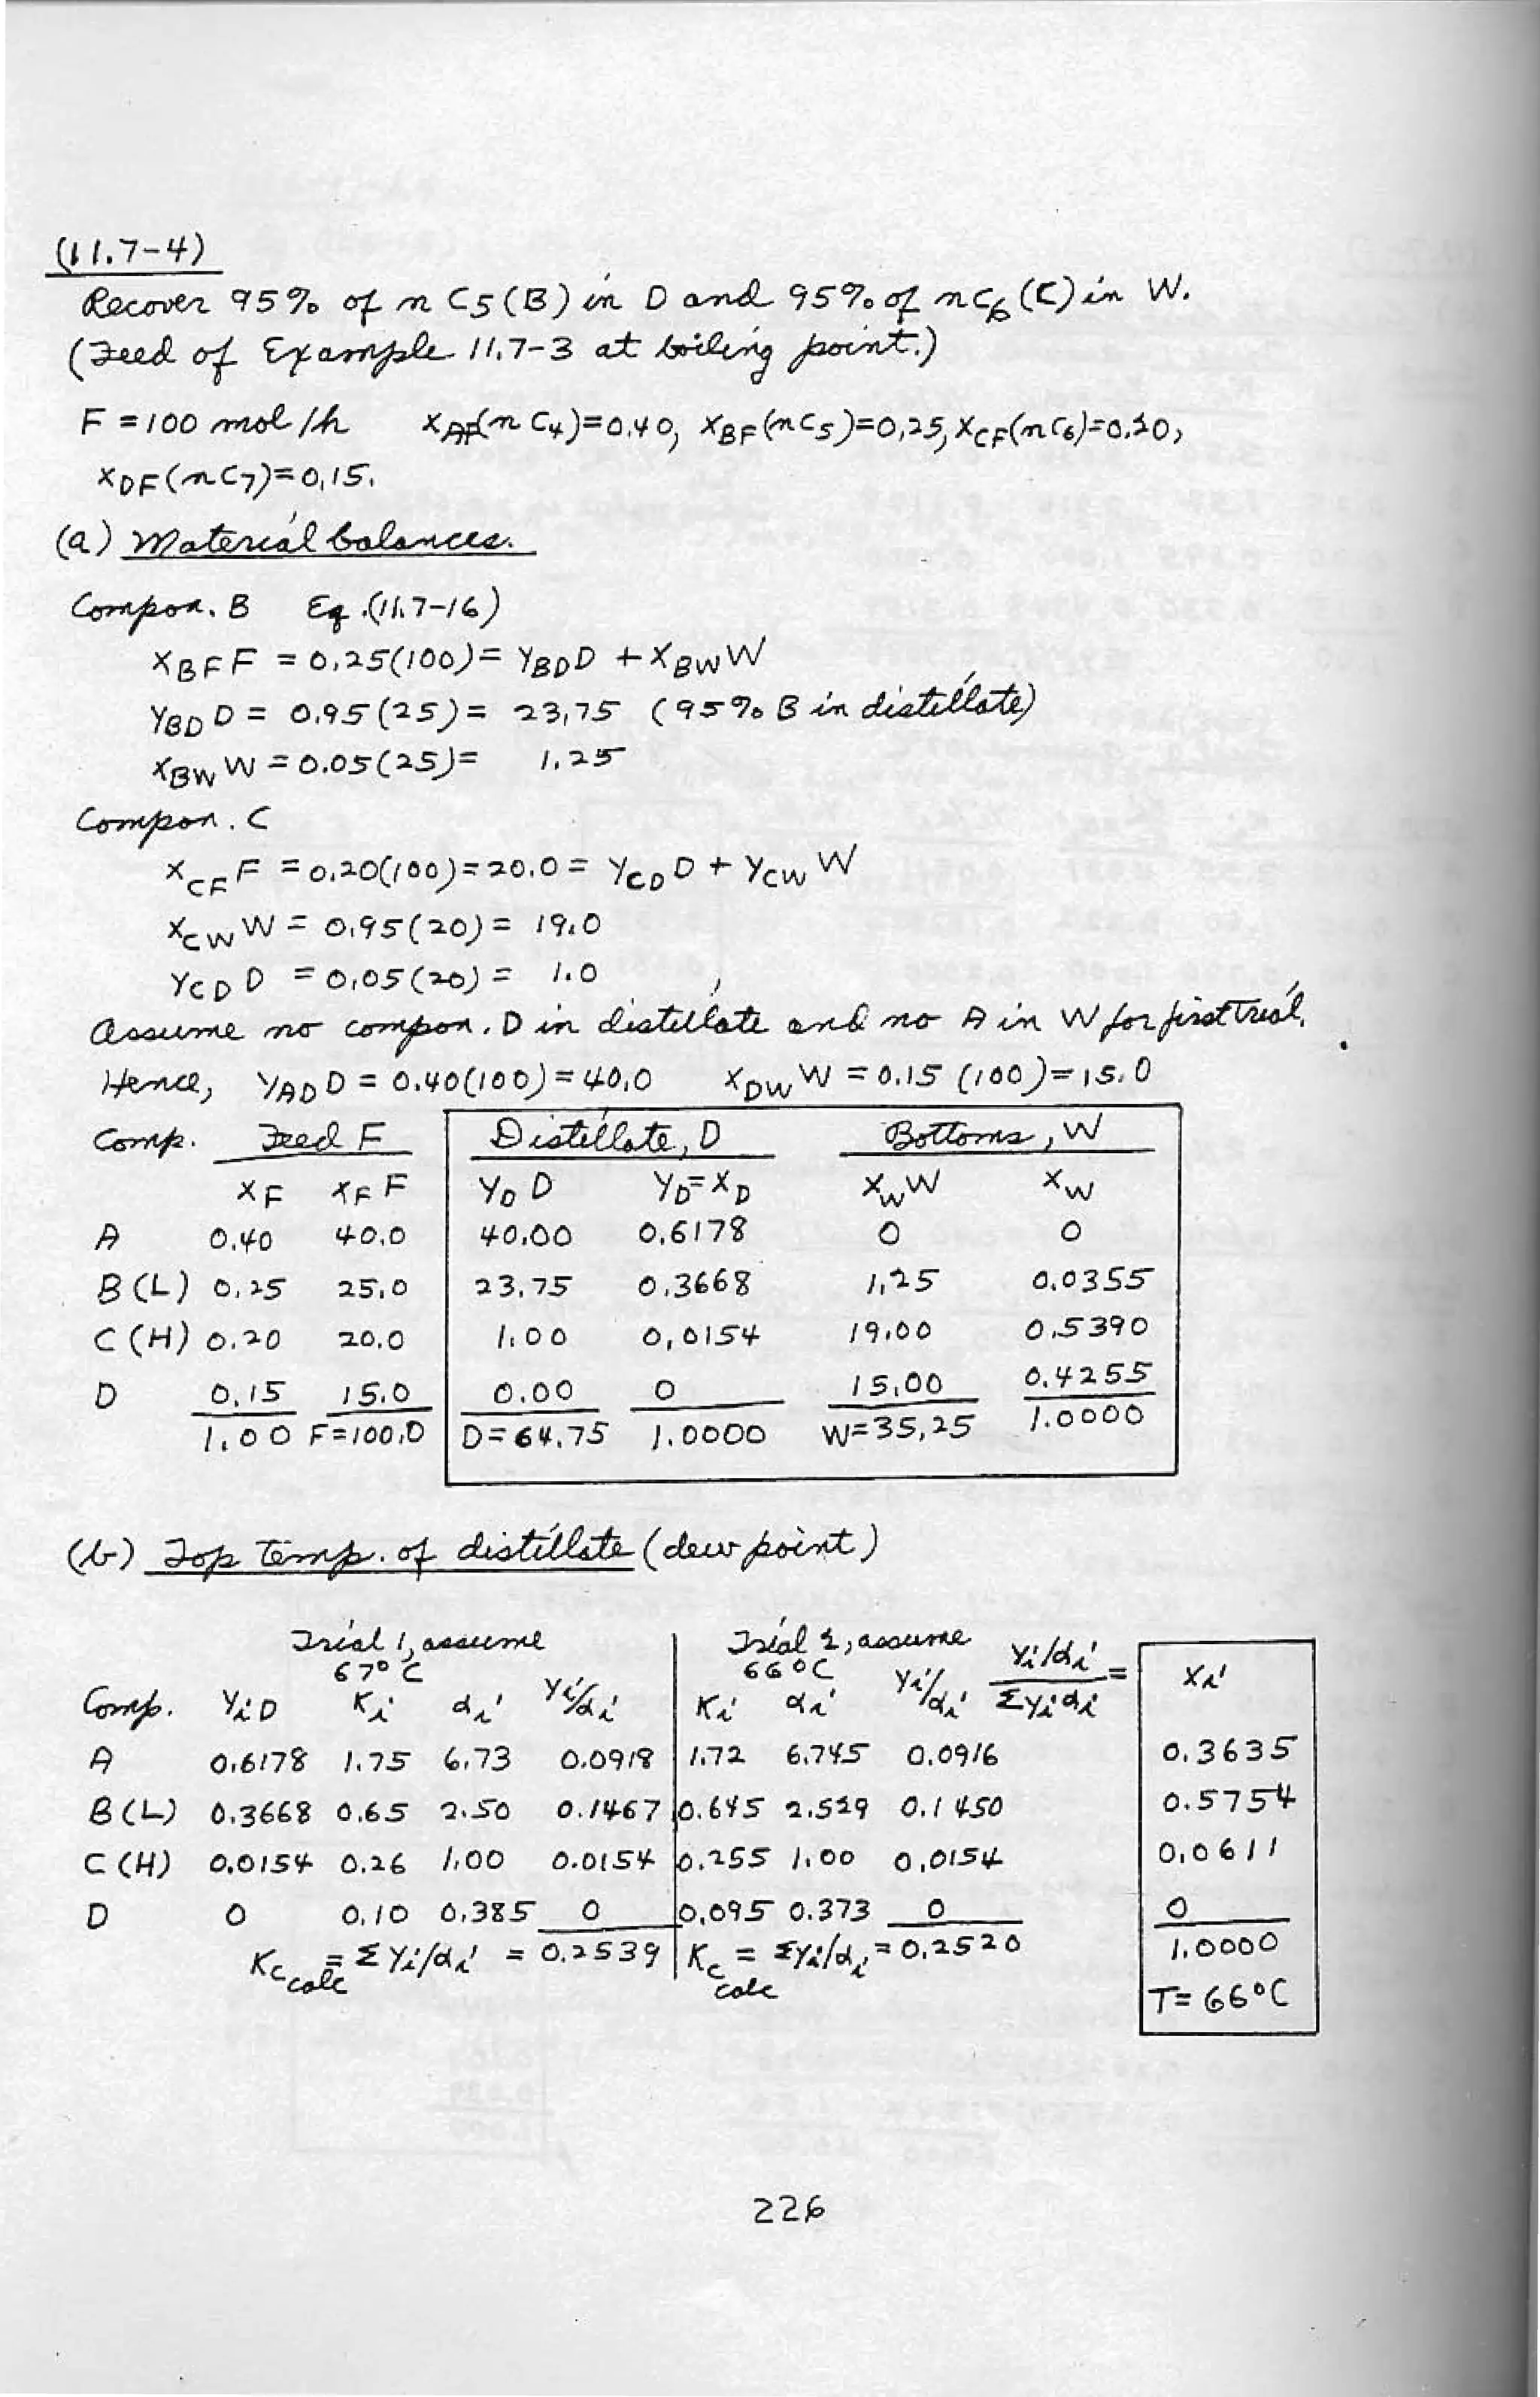 (11.7-4)
Recover 95% of nC5(B) in D and 95% of nC6(C) in W.
(Feed of Example 11.7-3 at boiling point.)
F = 100 mol/h   xAF(nC4)=0.40, xBF(nC5)=0.25, xCF(nC6)=0.20,
xDF(nC7)=0.15.
(a) Material balances.
Compon. B   Eq.(11.7-16)
xBF F = 0.25(100) = yBD D + xBW W
yBD D = 0.95(25) = 23.75 (95% B in distillate)
xBW W = 0.05(25) = 1.25
Compon. C
xCF F = 0.20(100) = 20.0 = yCD D + yCW W
xCW W = 0.95(20) = 19.0
yCD D = 0.05(20) = 1.0
Assume no compon. D in distillate and no A in W for first trial.
Hence, yAD D = 0.40(100) = 40.0   xDW W = 0.15 (100) = 15.0
Comp. Feed F   Distillate, D   Bottoms, W
xF   xF F   yD D   yD=xD   xW W   xW
A   0.40   40.0   40.00   0.6178   0   0
B (L)   0.25   25.0   23.75   0.3668   1.25   0.0355
C (H)   0.20   20.0   1.00   0.0154   19.00   0.5390
D   0.15   15.0   0.00   0   15.00   0.4255
1.00   F=100.0   D=64.75   1.0000   W=35.25   1.0000
(b) Top temp. of distillate (dew point)
Trial 1, assume   Trial 2, assume
67°C   66°C
Comp.   yiD   Ki   αi'   yi/αi'   Ki'   αi'   yi/αi'   yi/αi' / Σyiαi =   xi'
A   0.6178   1.75   6.73   0.0918   1.72   6.745   0.0916   0.3635
B(L)   0.3668   0.65   2.50   0.1467   0.645   2.529   0.1450   0.5754
C (H)   0.0154   0.26   1.00   0.0154   0.255   1.00   0.0154   0.0611
D   0   0.10   0.385   0   0.095   0.373   0   0
Kc calc = Σ yi/αi' = 0.2539   Kc calc = Σyi/αi = 0.2520   1.0000
T= 66°C
226